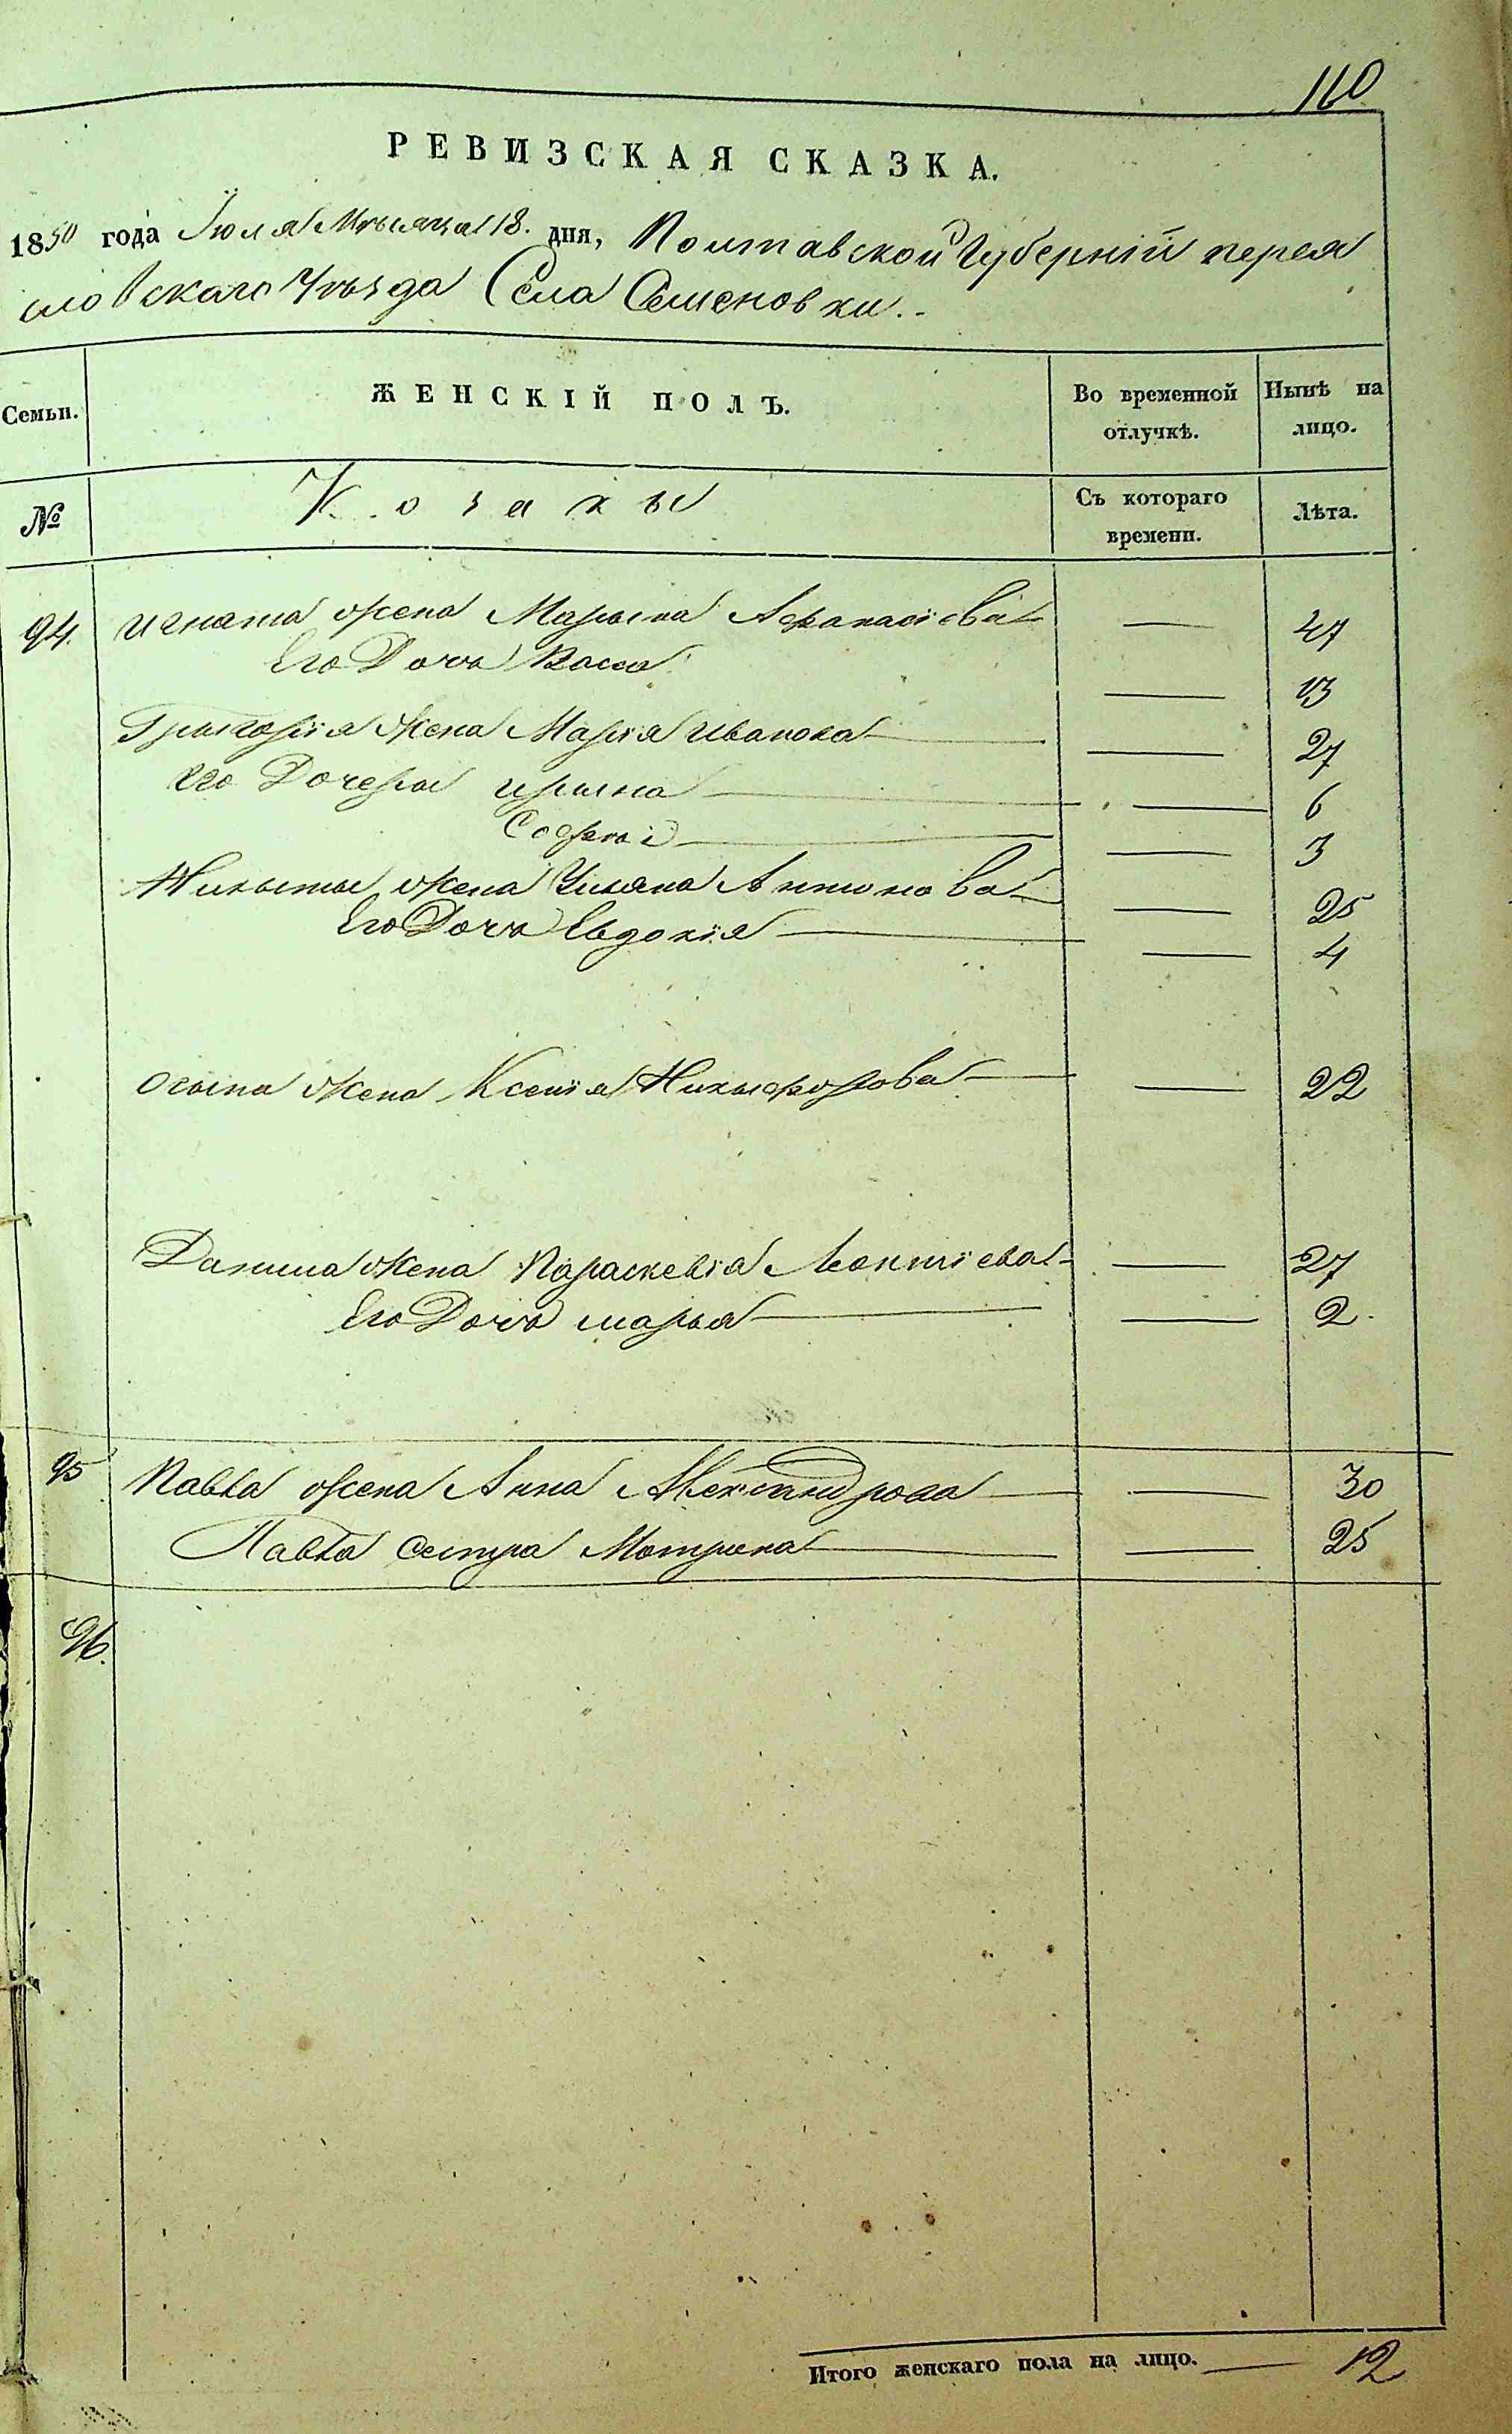 110
РЕВИЗСКАЯ СКАЗКА.
1850 года Іюля Мѣсяца 18. дня, Полтавской Губерніи перея
словскаго Уѣзда Села Семеновки.
Семьи. ЖЕНСКІЙ ПОЛЪ. Во временной отлучкѣ. Нынѣ на лицо.
№ Козаки Съ котораго времени. Лѣта.
94. Игната жена Марына Афанасіева — 47
Его Дочь — 13
Григорія жена Марія Иванова — 27
Его Дочери Ирина — 6
Софія — 3
Никиты жена Уляна Антонова — 25
Его Дочь Евдокія — 4
Осыпа жена Ксенія Никыфорова — 22
Данила жена Параскевія Леонтіева — 27
Его Дочь марья — 2.
95 Павла жена Анна Александрова — 30
Павла сестра Мотрина — 25
96.
Итого женскаго пола на лицо. — 12